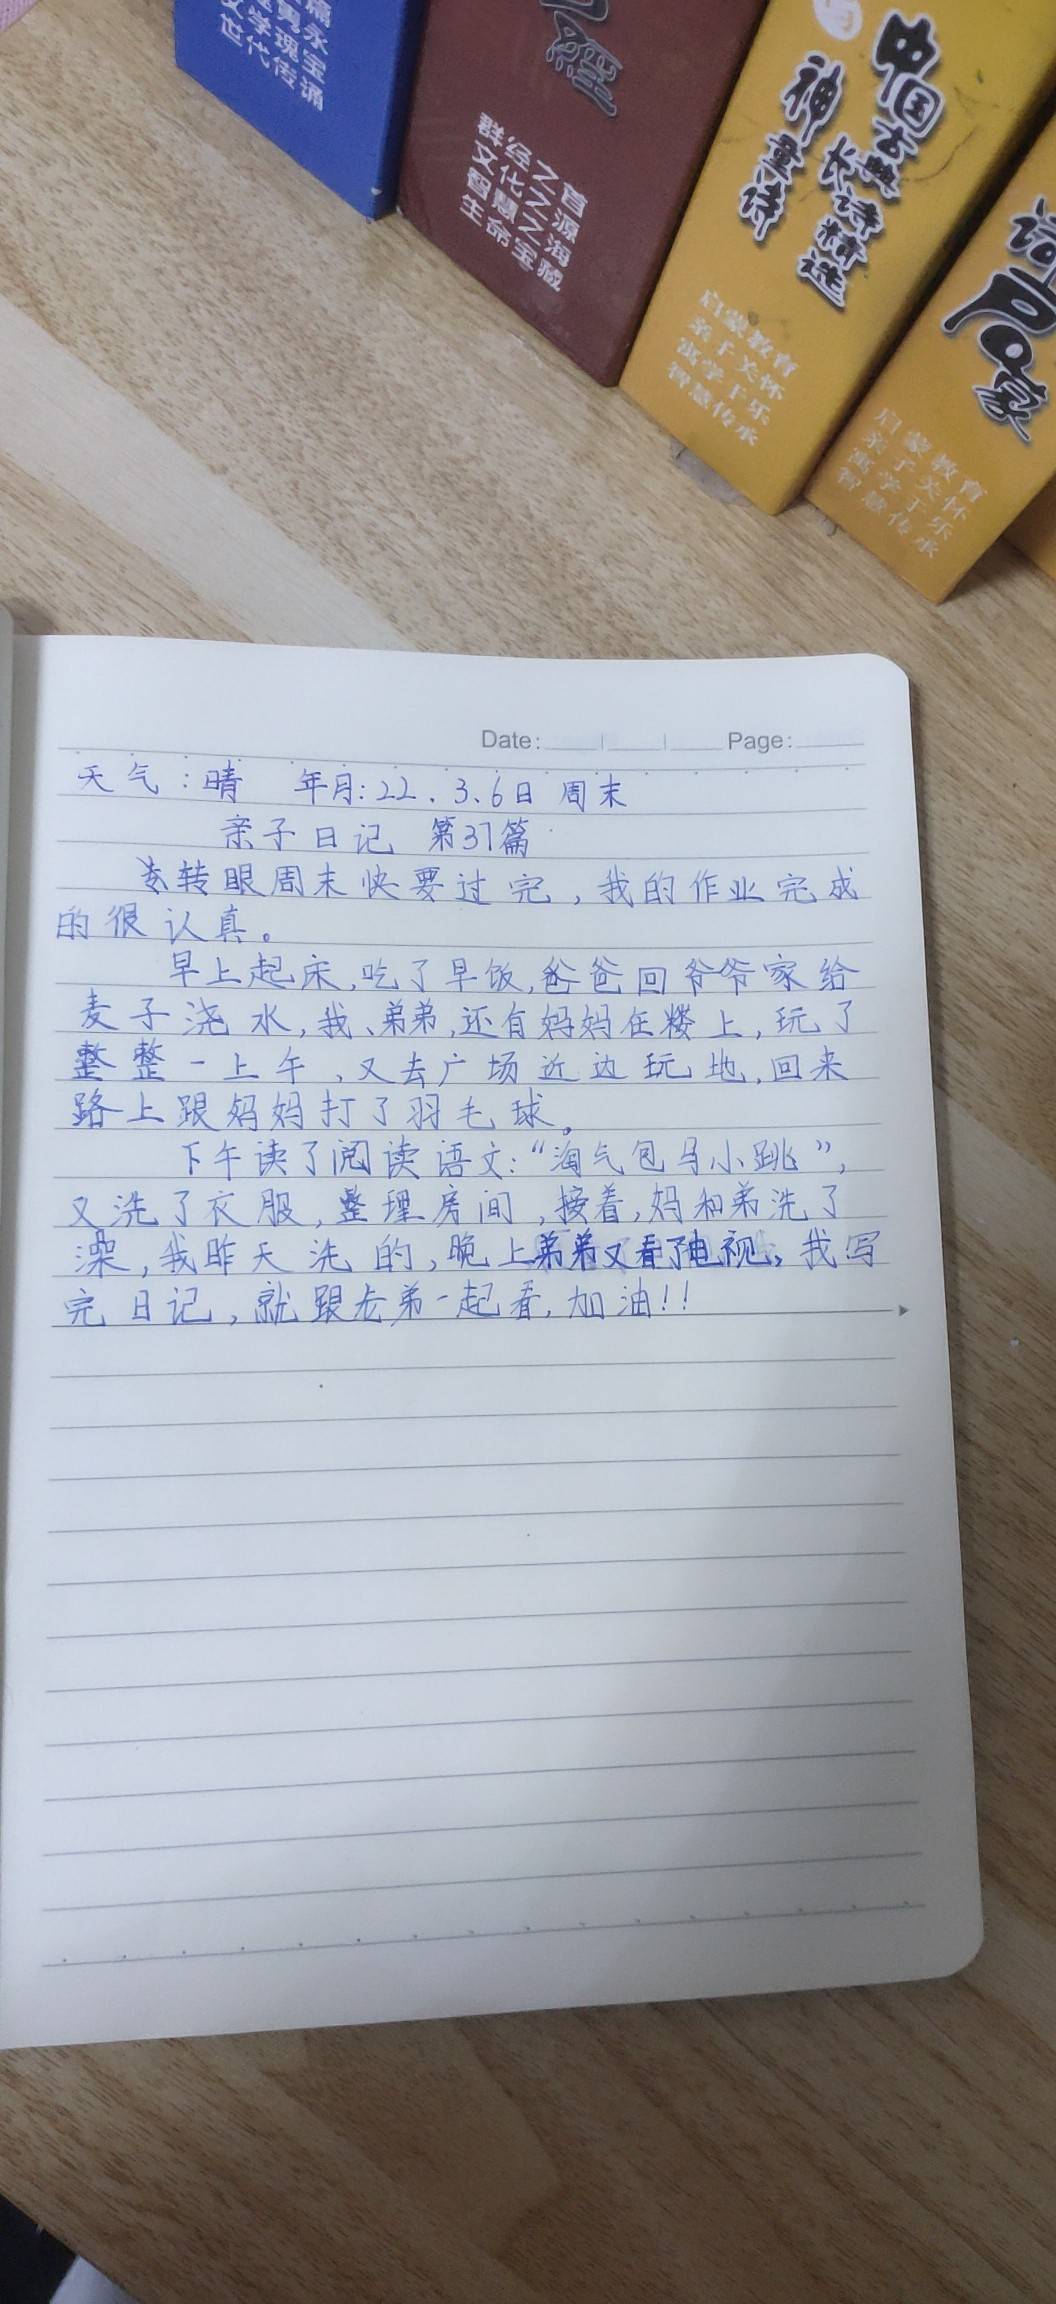 文学瑰宝
世代传诵
經
群经之首
文化之源
智慧之海
生命宝藏
中国古典
长诗精选
神童诗
启蒙教育
亲子关怀
寓学于乐
智慧传承
启蒙教育
亲子关怀
寓学于乐
智慧传承
Date: Page:
天气:晴 年月:22.3.6日 周末
亲子日记 第37篇
转眼周末快要过完,我的作业完成
的很认真。
早上起床,吃了早饭,爸爸回爷爷家给
麦子浇水,我、弟弟,还有妈妈在楼上,玩了
整整一上午、又去广场近边玩地,回来
路上跟妈妈打了羽毛球。
下午读了阅读语文:“淘气包马小跳”,
又洗了衣服,整理房间,接着,妈和弟洗了
澡,我昨天洗的,晚上弟弟又看了电视,我写
完日记,就跟老弟一起看,加油!!